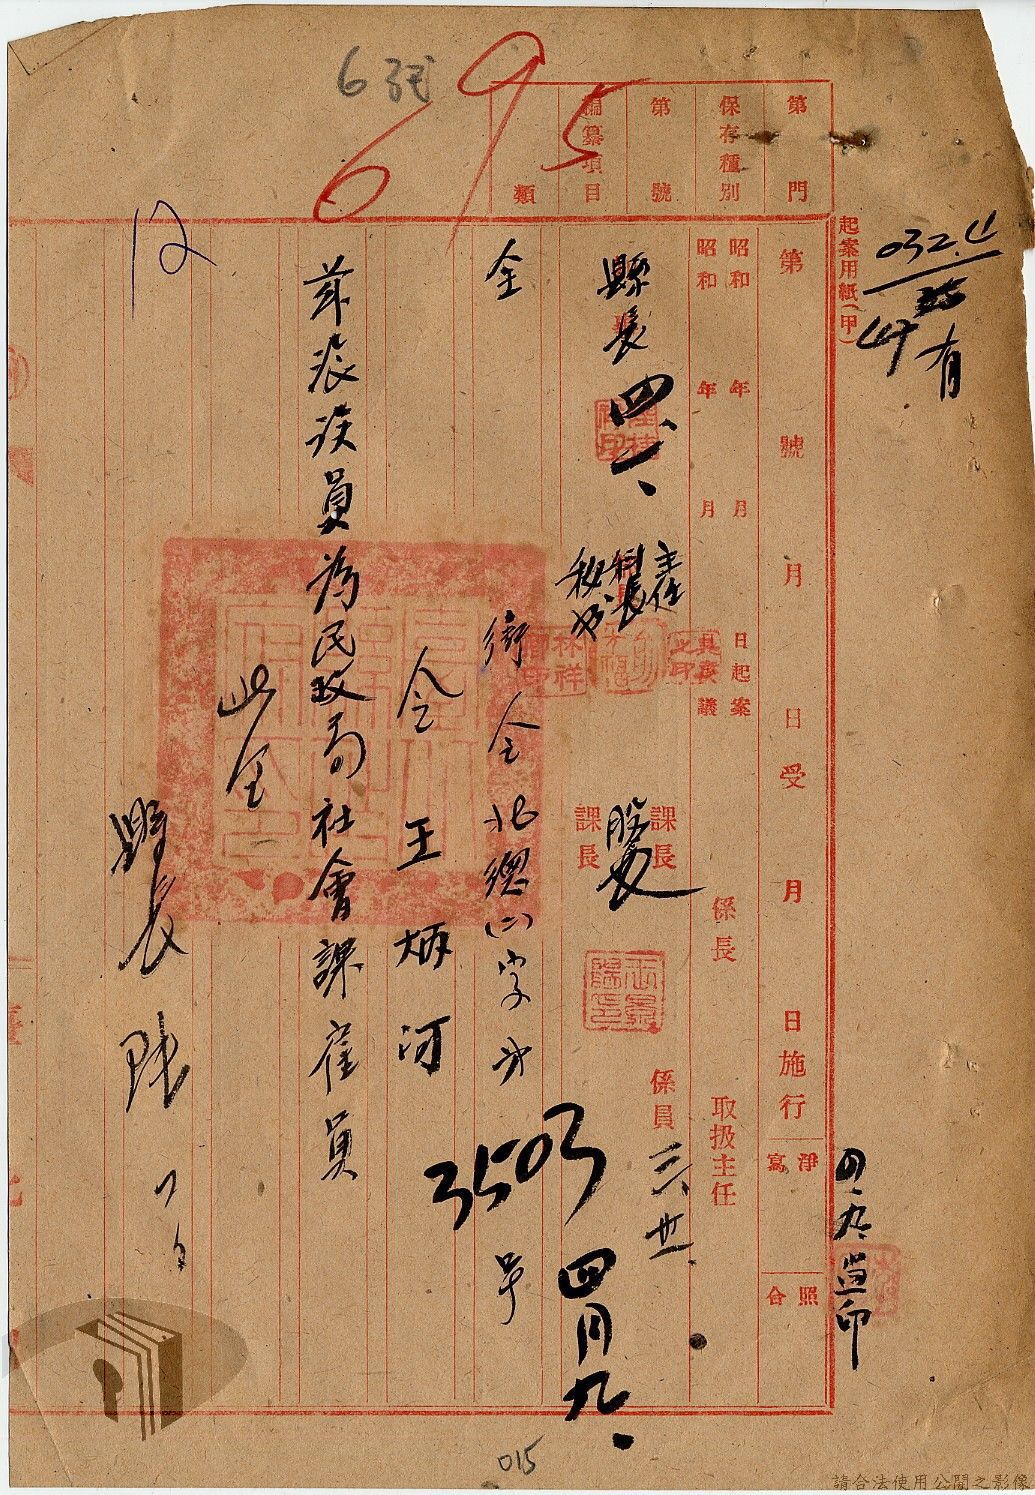 6
695
第 門
保存種別
第 號
編纂項目
類
起案用紙(甲)
032.4
有
四、九、 印
第 號 月 日受 月 日施行
淨寫
照合
昭和 年 月 日起案
昭和 年 月
議
係長
取扱主任
縣長
四、一、
主任
科長
秘書
課長
課長
股長
係員
三、卅一
四月九、
令
銜令北總(二)字第3503號
令 王炳河
茲派該員為民政局社會課雇員
此令
縣長 陸
12
015
請合法使用公開之影像